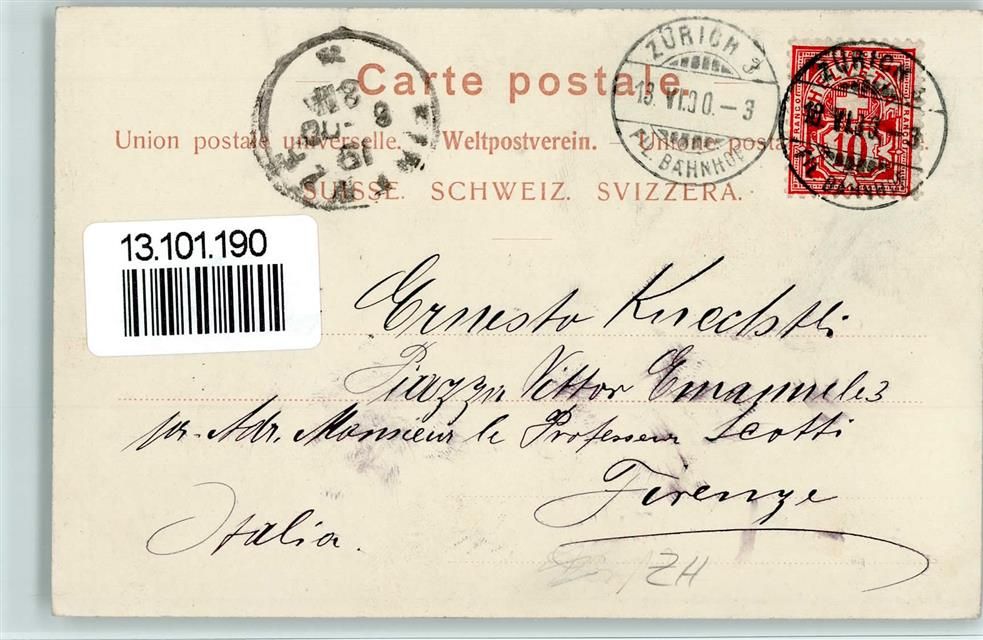 Carte postale.
Union postale universelle. — Weltpostverein. — Unione postale
SUISSE. SCHWEIZ. SVIZZERA.
ZÜRICH 3
13. VI. 00. – 3
BAHNHOF
ZÜRICH
HELVETIA
FRANCO
10
FRANCO
– 3
13.101.190
Ernesto Knechtli
Piazza Vittor Emanuele 3
pr. Adr. Monsieur le Professeur Scotti
Firenze
Italia.
ZH